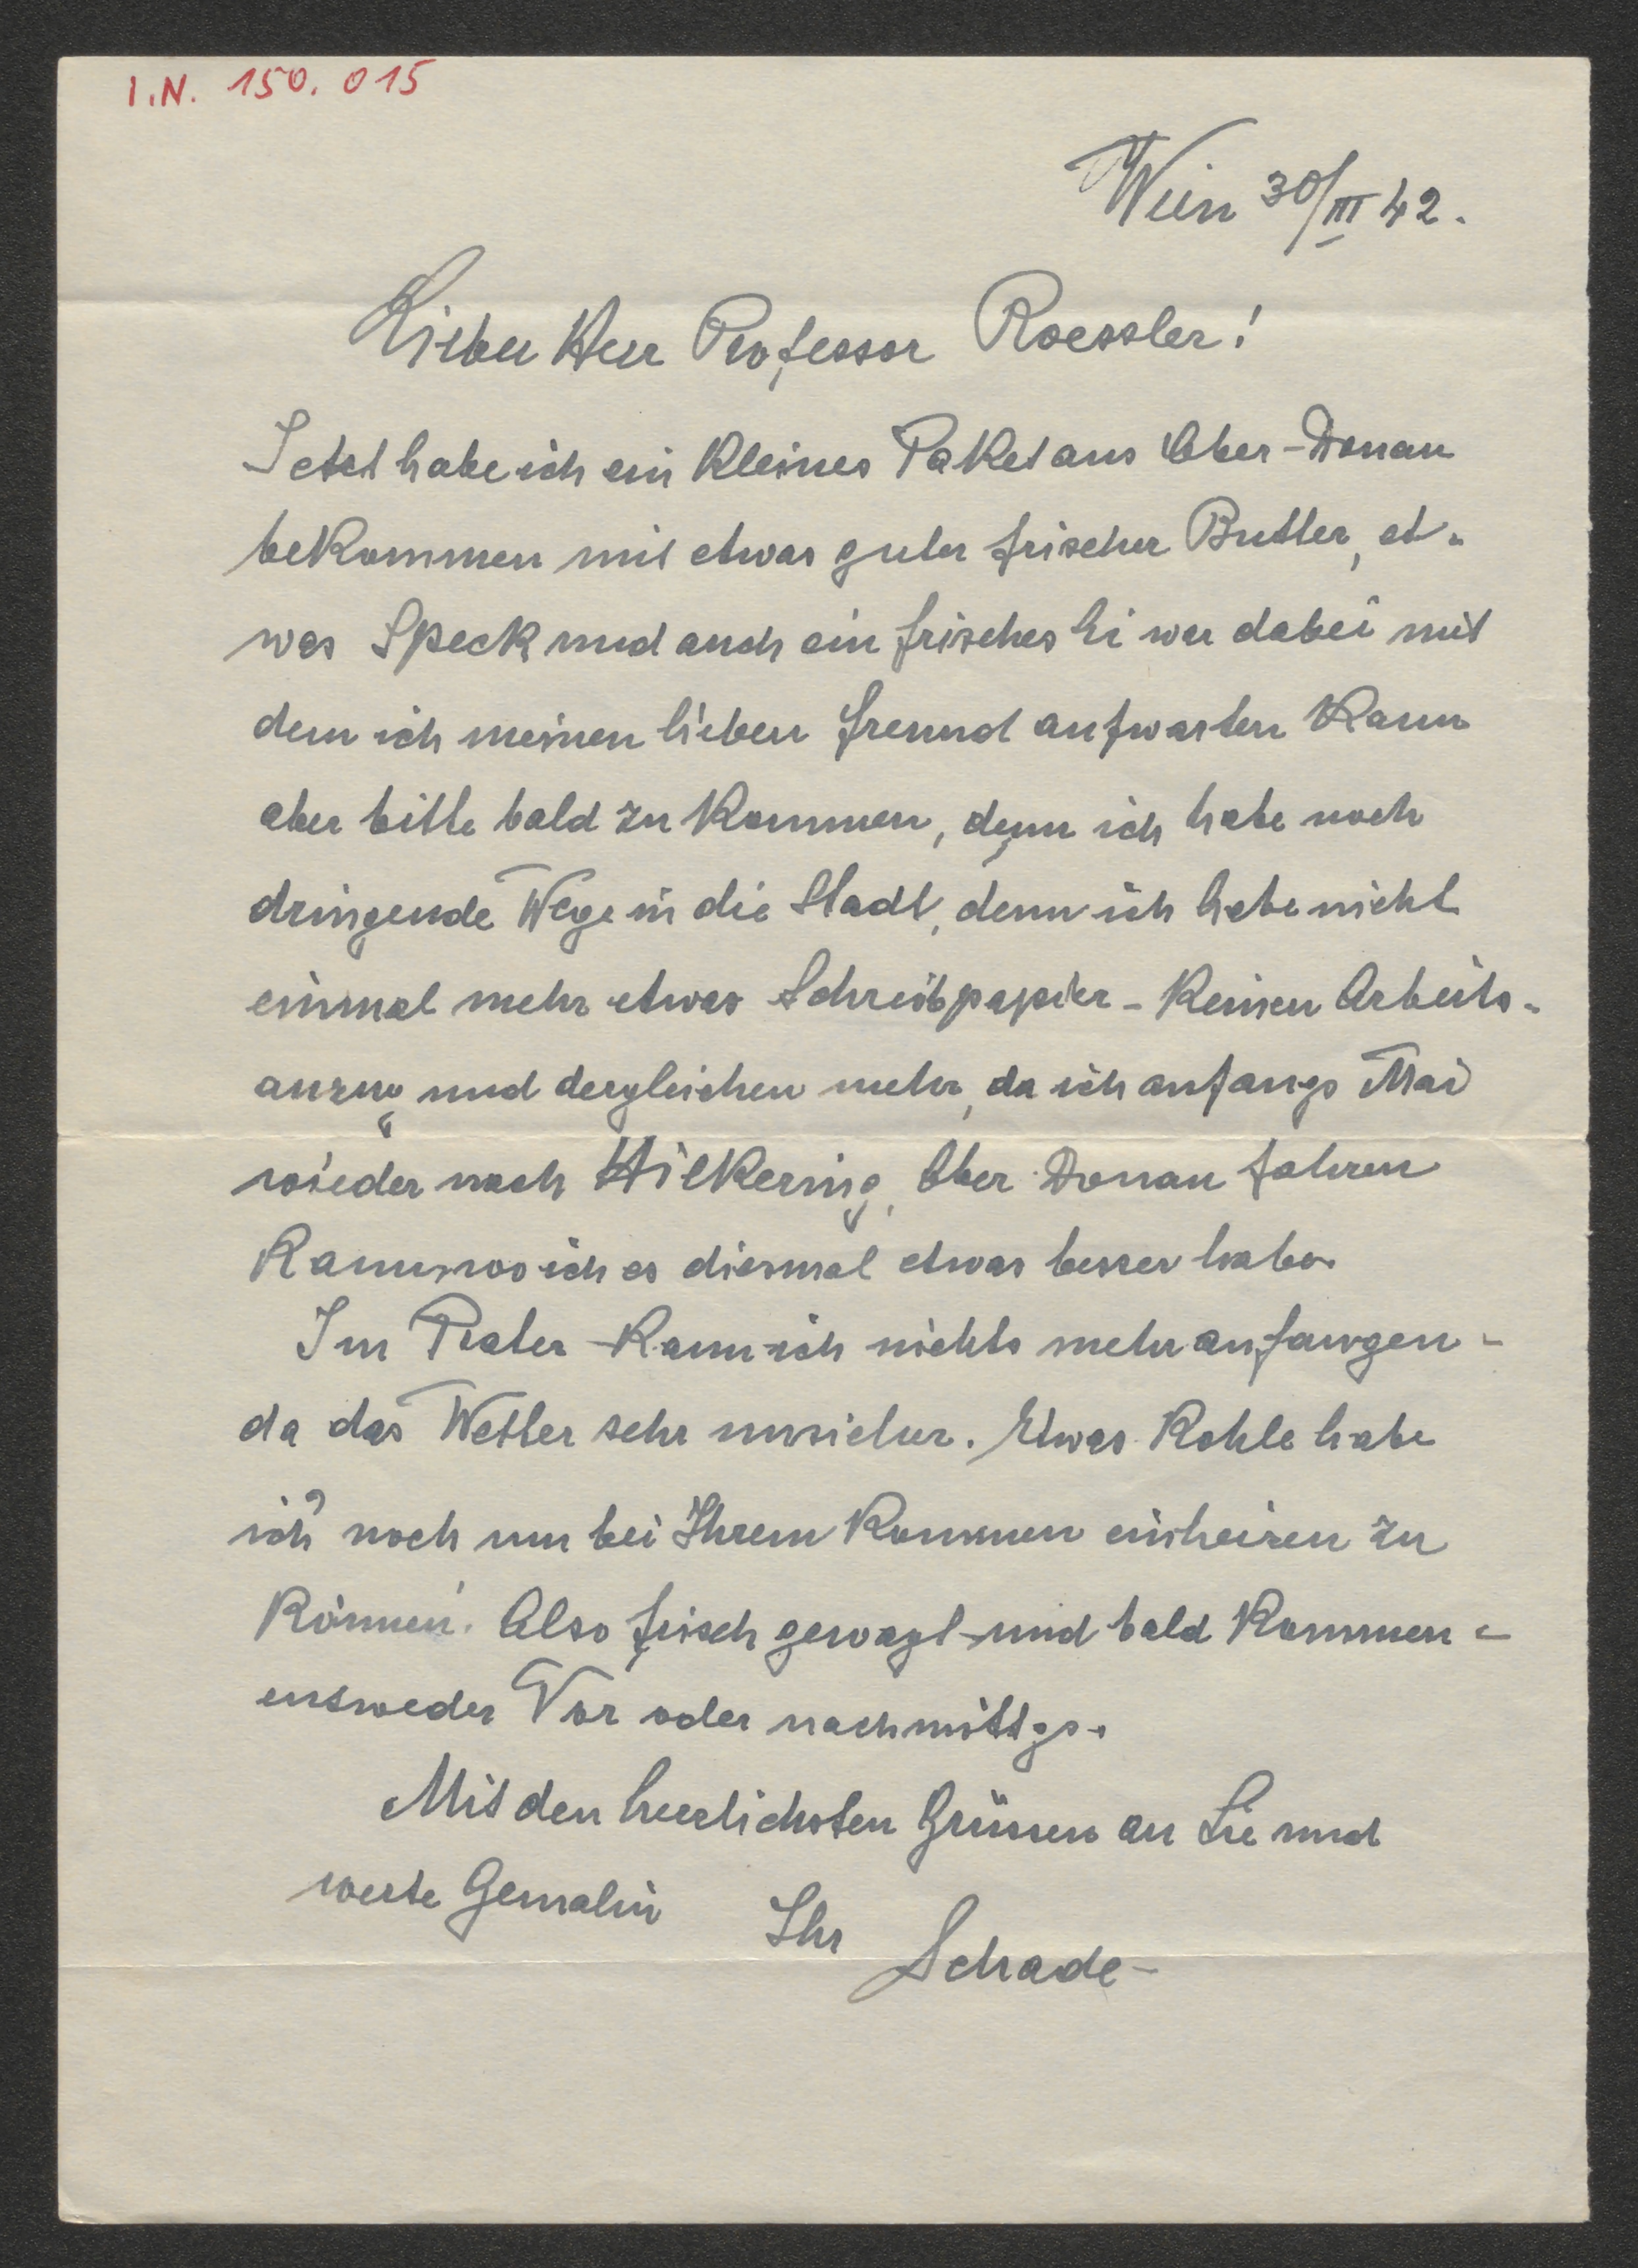 I.N. 150.015
Wien 30/III 42.
Lieber Herr Professor Roessler!
Jetzt habe ich ein kleines Paket aus Ober-Donau
bekommen mit etwas guter frischer Butter, et-
was Speck und auch ein frisches Ei war dabei mit
dem ich meinen lieben Freund aufwarten kann
aber bitte bald zu kommen, denn ich habe noch
dringende Wege in die Stadt, denn ich habe nicht
einmal mehr etwas Schreibpapier - keinen Arbeits-
anzug und dergleichen mehr, da ich anfangs Mai
wieder nach Hilkering, Ober-Donau fahren
kann, wo ich es diesmal etwas besser habe.
Im Prater kann ich nichts mehr anfangen -
da das Wetter sehr unsicher. Etwas Kohle habe
ich noch um bei Ihrem Kommen einheizen zu
können. Also frisch gewagt und bald kommen -
entweder Vor oder nachmittgs.
Mit den herzlichsten Grüssen an Sie und
werte Gemalin
Ihr Schade-